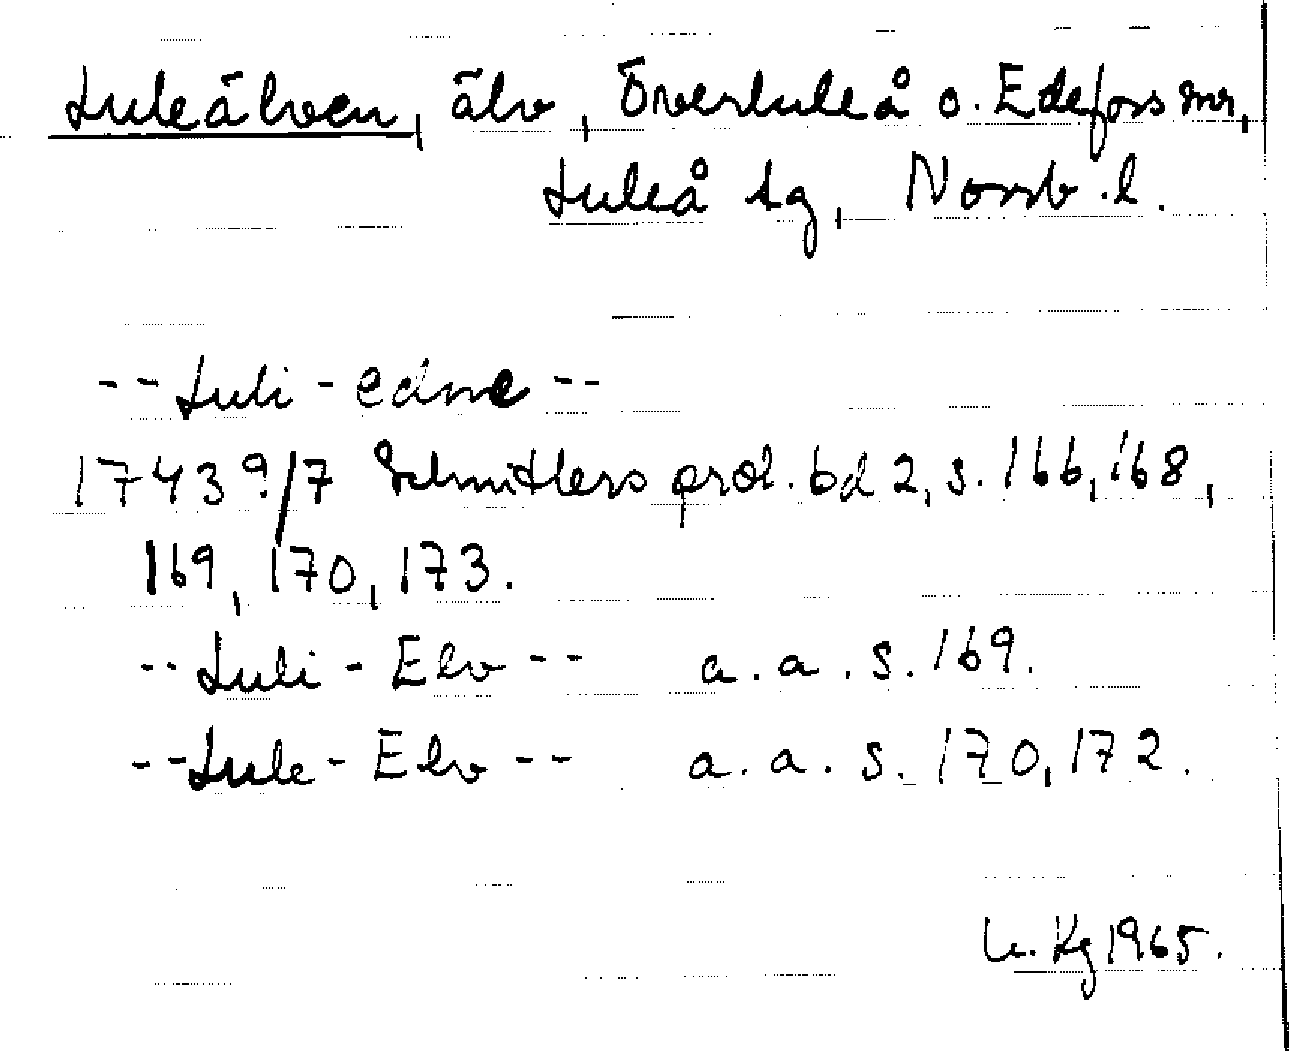 Luleälven, älv, Överluleå o. Edefors snr,
Luleå tg, Norrb. l.
-- Luli - edne --
1743 9/7 Schnitlers prot. bd 2, s. 166, 168,
169, 170, 173.
-- Luli - Elv -- a. a. s. 169.
-- Lule - Elv -- a. a. s. 170, 172.
Kg 1965.